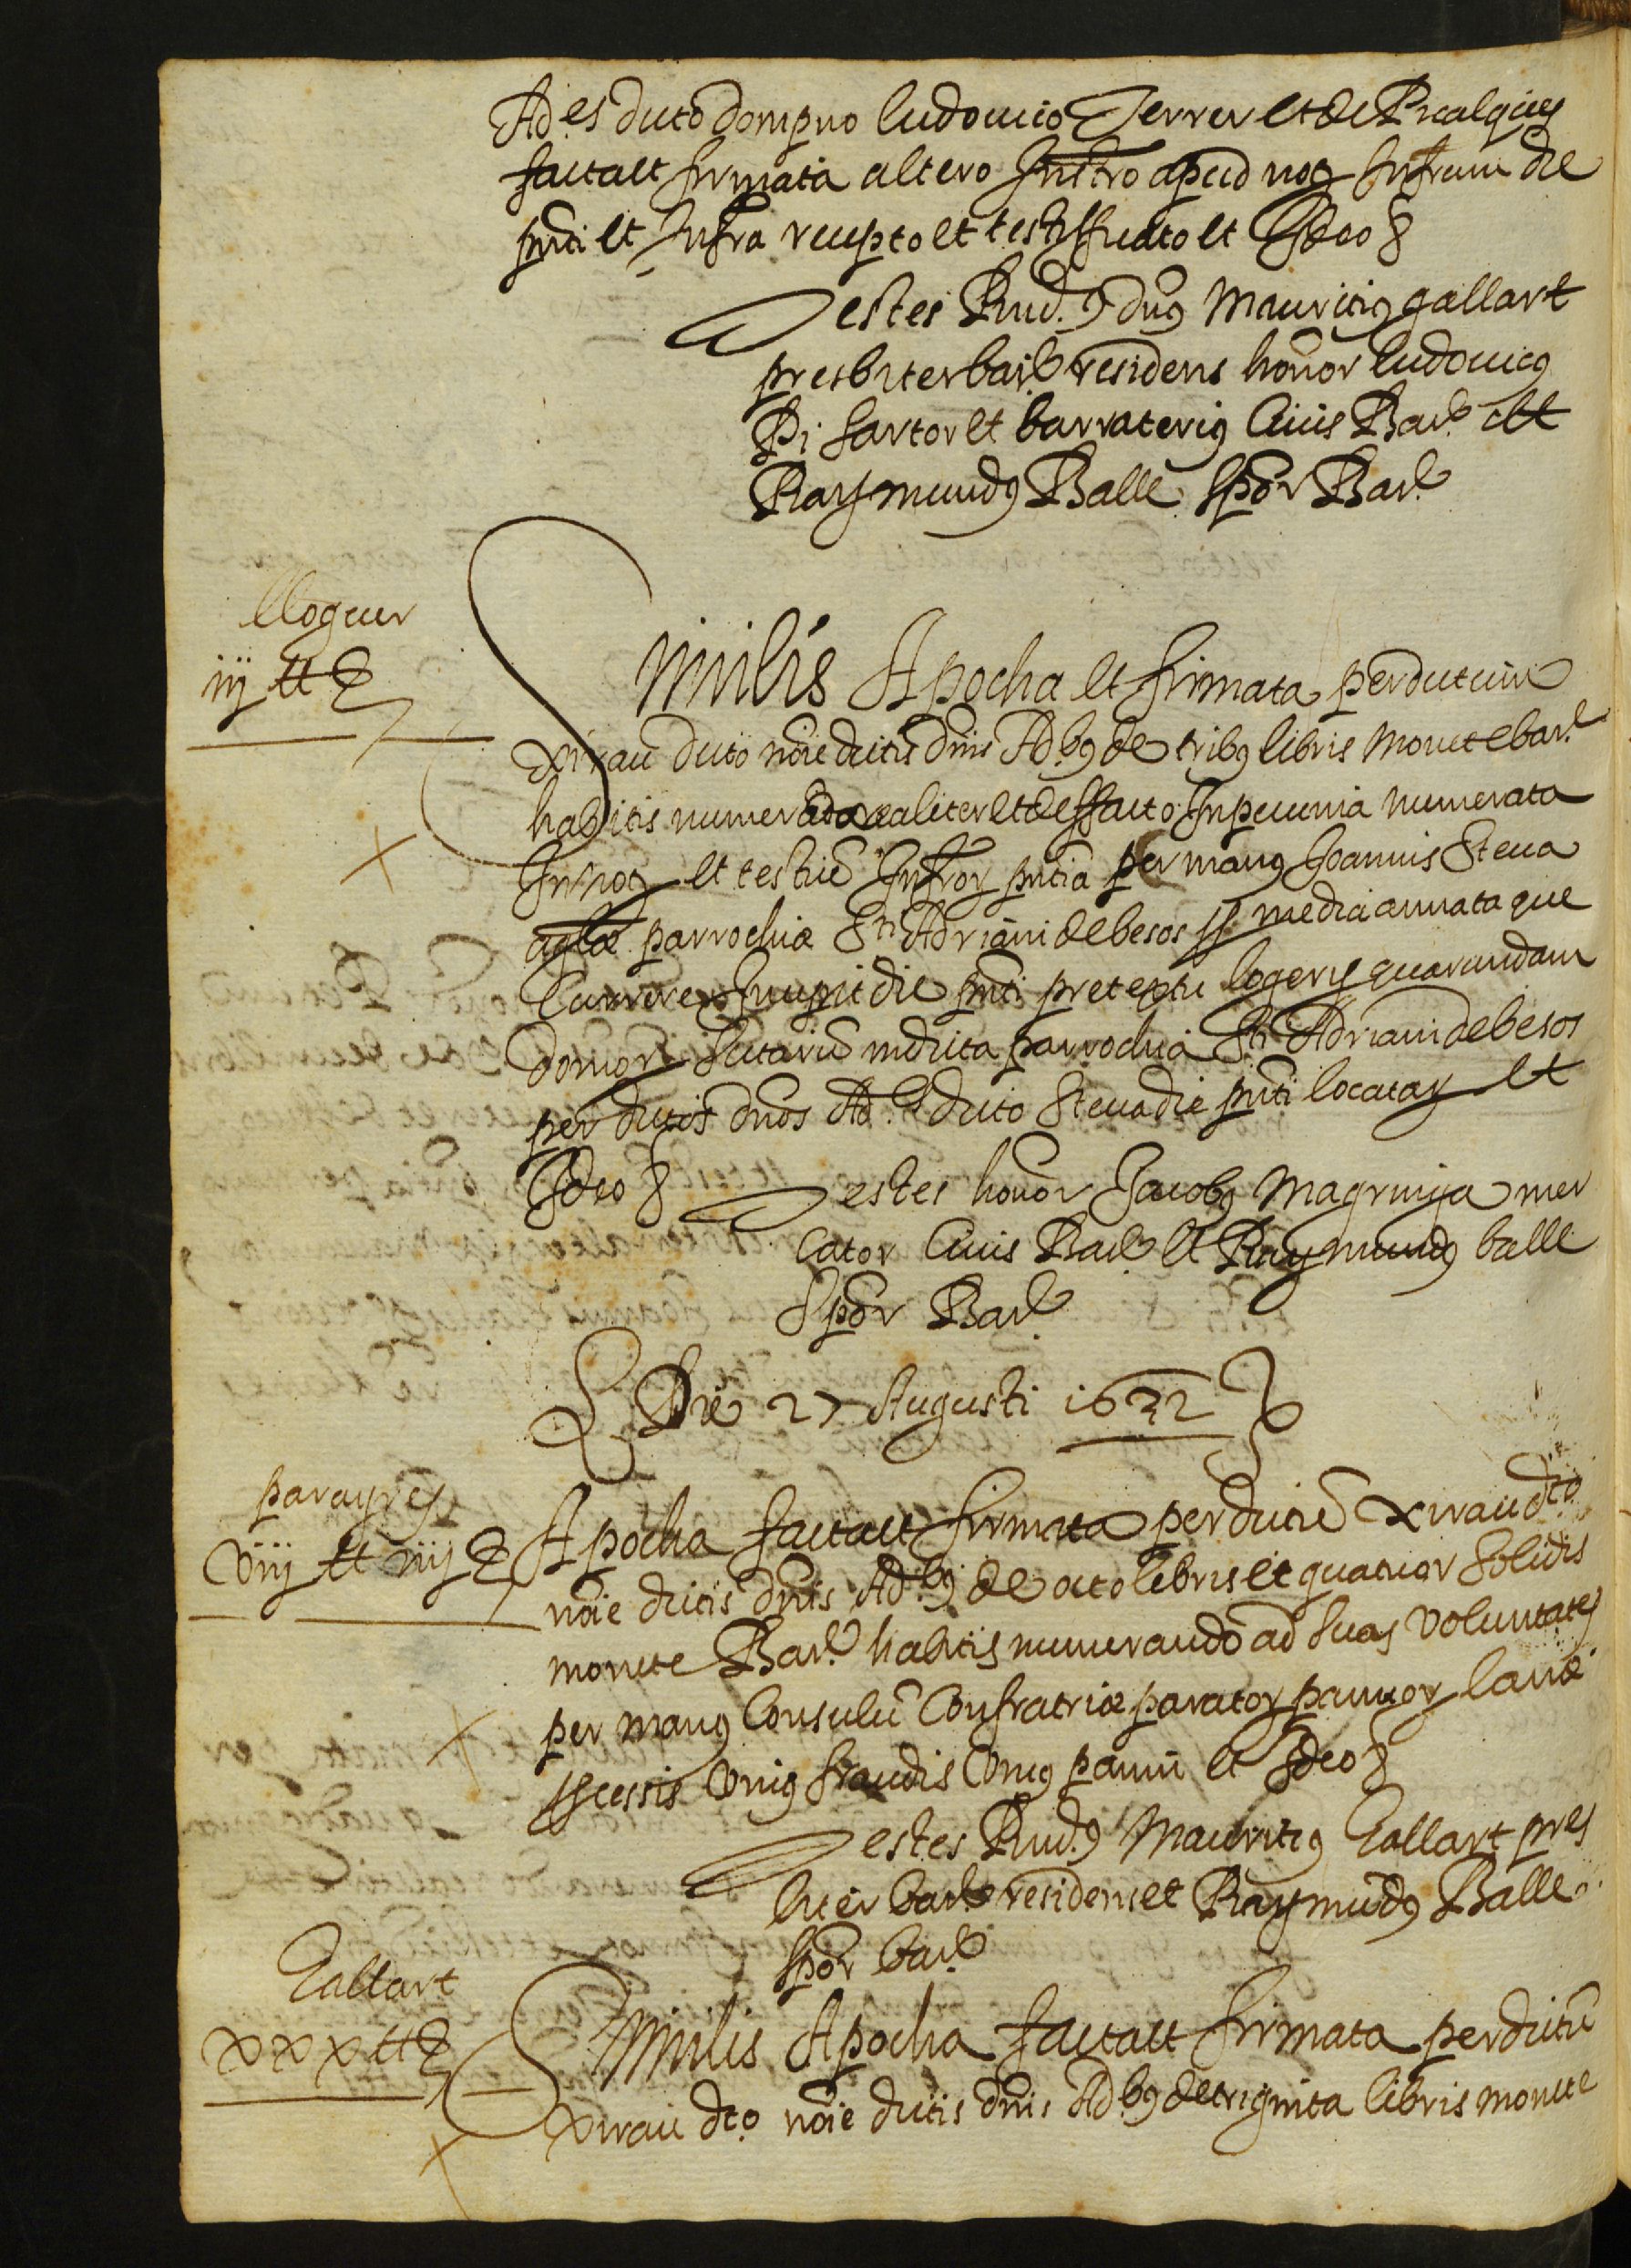 Ad.es dicto dompno ludovico Ferrer et de
facta et firmata altero Instro apud noṭ Infrum die
pnti et Infra recepto et testifficato et Ideo &
Testes Rnd.9 dn9 Mauriti9 gallart
presbiter bar.e residens honor ludovic9
Pi sartor et barrateri9 Civis Bar.e et
Raymund9 Balle spor Bar.e
lloguer
iij ll s
Similis Apocha et firmata per dictum
Xirau dicto noie dictis dnis Ad.b9 de trib9 libris monete bar.e
habitis numerado realiter et de ffacto In pecunia numerata
In noṭ et testiũ Infror pntia per man9 Joannis Steva
aglæ parrochiæ Sti Adriani de besos media annata que
currere Incepit die pnti pretextu logerii quarundam
domor sitariũ in dicta parrochia Sti Adriani de besos
per dictos dnos Ad.es dicto Steva die pnti locatar et
Ideo &
Testes honor Jacob9 Magrinya mer
cator Civis Bar.e et Raymund9 balle
Spor Bar.e
Die 27 Augusti 1632
parayres
viij ll iiij s
Apocha facta et firmata per dictũ Xirau dto
noie dictis dnis Ad.b9 de octo libris et quatuor solidis
monete Bar.e habitis numerando ad suas voluntates
per man9 Consulũ Confratriæ parator pannor lanæ
ss cessis uni9 fraudis uni9 panni et Ideo &
Testes Rnd.9 Mauriti9 Gallart pres
biter bar.e residens et Raymũd9 Balle
spor bar.e
Gallart
xxx ll s
Similis Apocha facta et firmata per dictũ
Xirau dto noie dictis dnis Ad.b9 de triginta libris monete